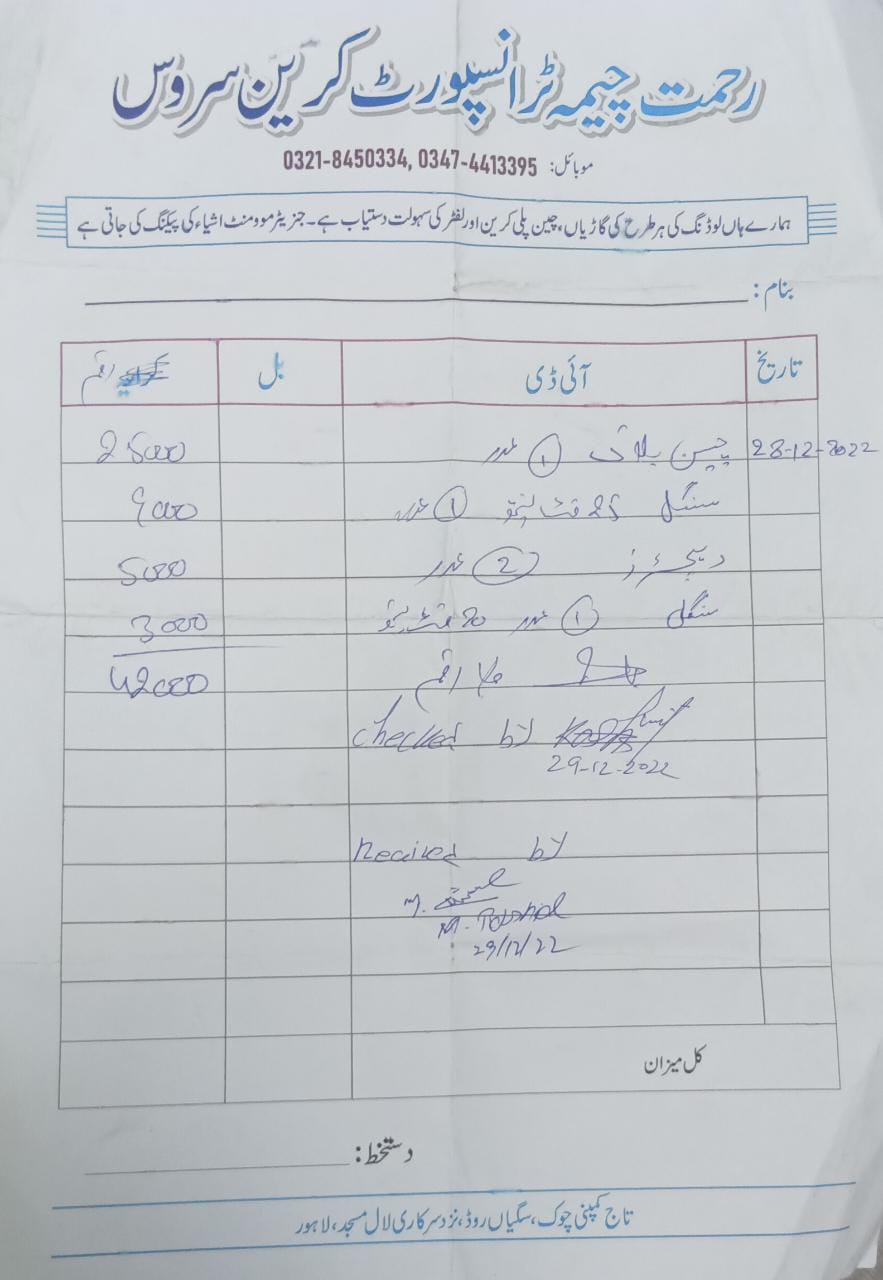 رحمت چیمہ ٹرانسپورٹ کرین سروس
موبائل: 0321-8450334, 0347-4413395
ہمارے ہاں لوڈنگ کی ہر طرح کی گاڑیاں، چین پلی کرین اور لفٹر کی سہولت دستیاب ہے۔ جنریٹر موومنٹ اشیاء کی پیکنگ کی جاتی ہے
بنام:
تاریخ آئی ڈی بل رقم
28-12-2022 1 عدد 25000
سنگل 25 فٹ 1 عدد 9000
2 عدد 5000
سنگل 1 عدد 20 فٹ 3000
رقم 42000
checked by
29-12-2022
Recived by
M.
M.
29/12/22
کل میزان
دستخط:
تاج کمپنی چوک، سگیاں روڈ، نزد سرکاری لال مسجد، لاہور